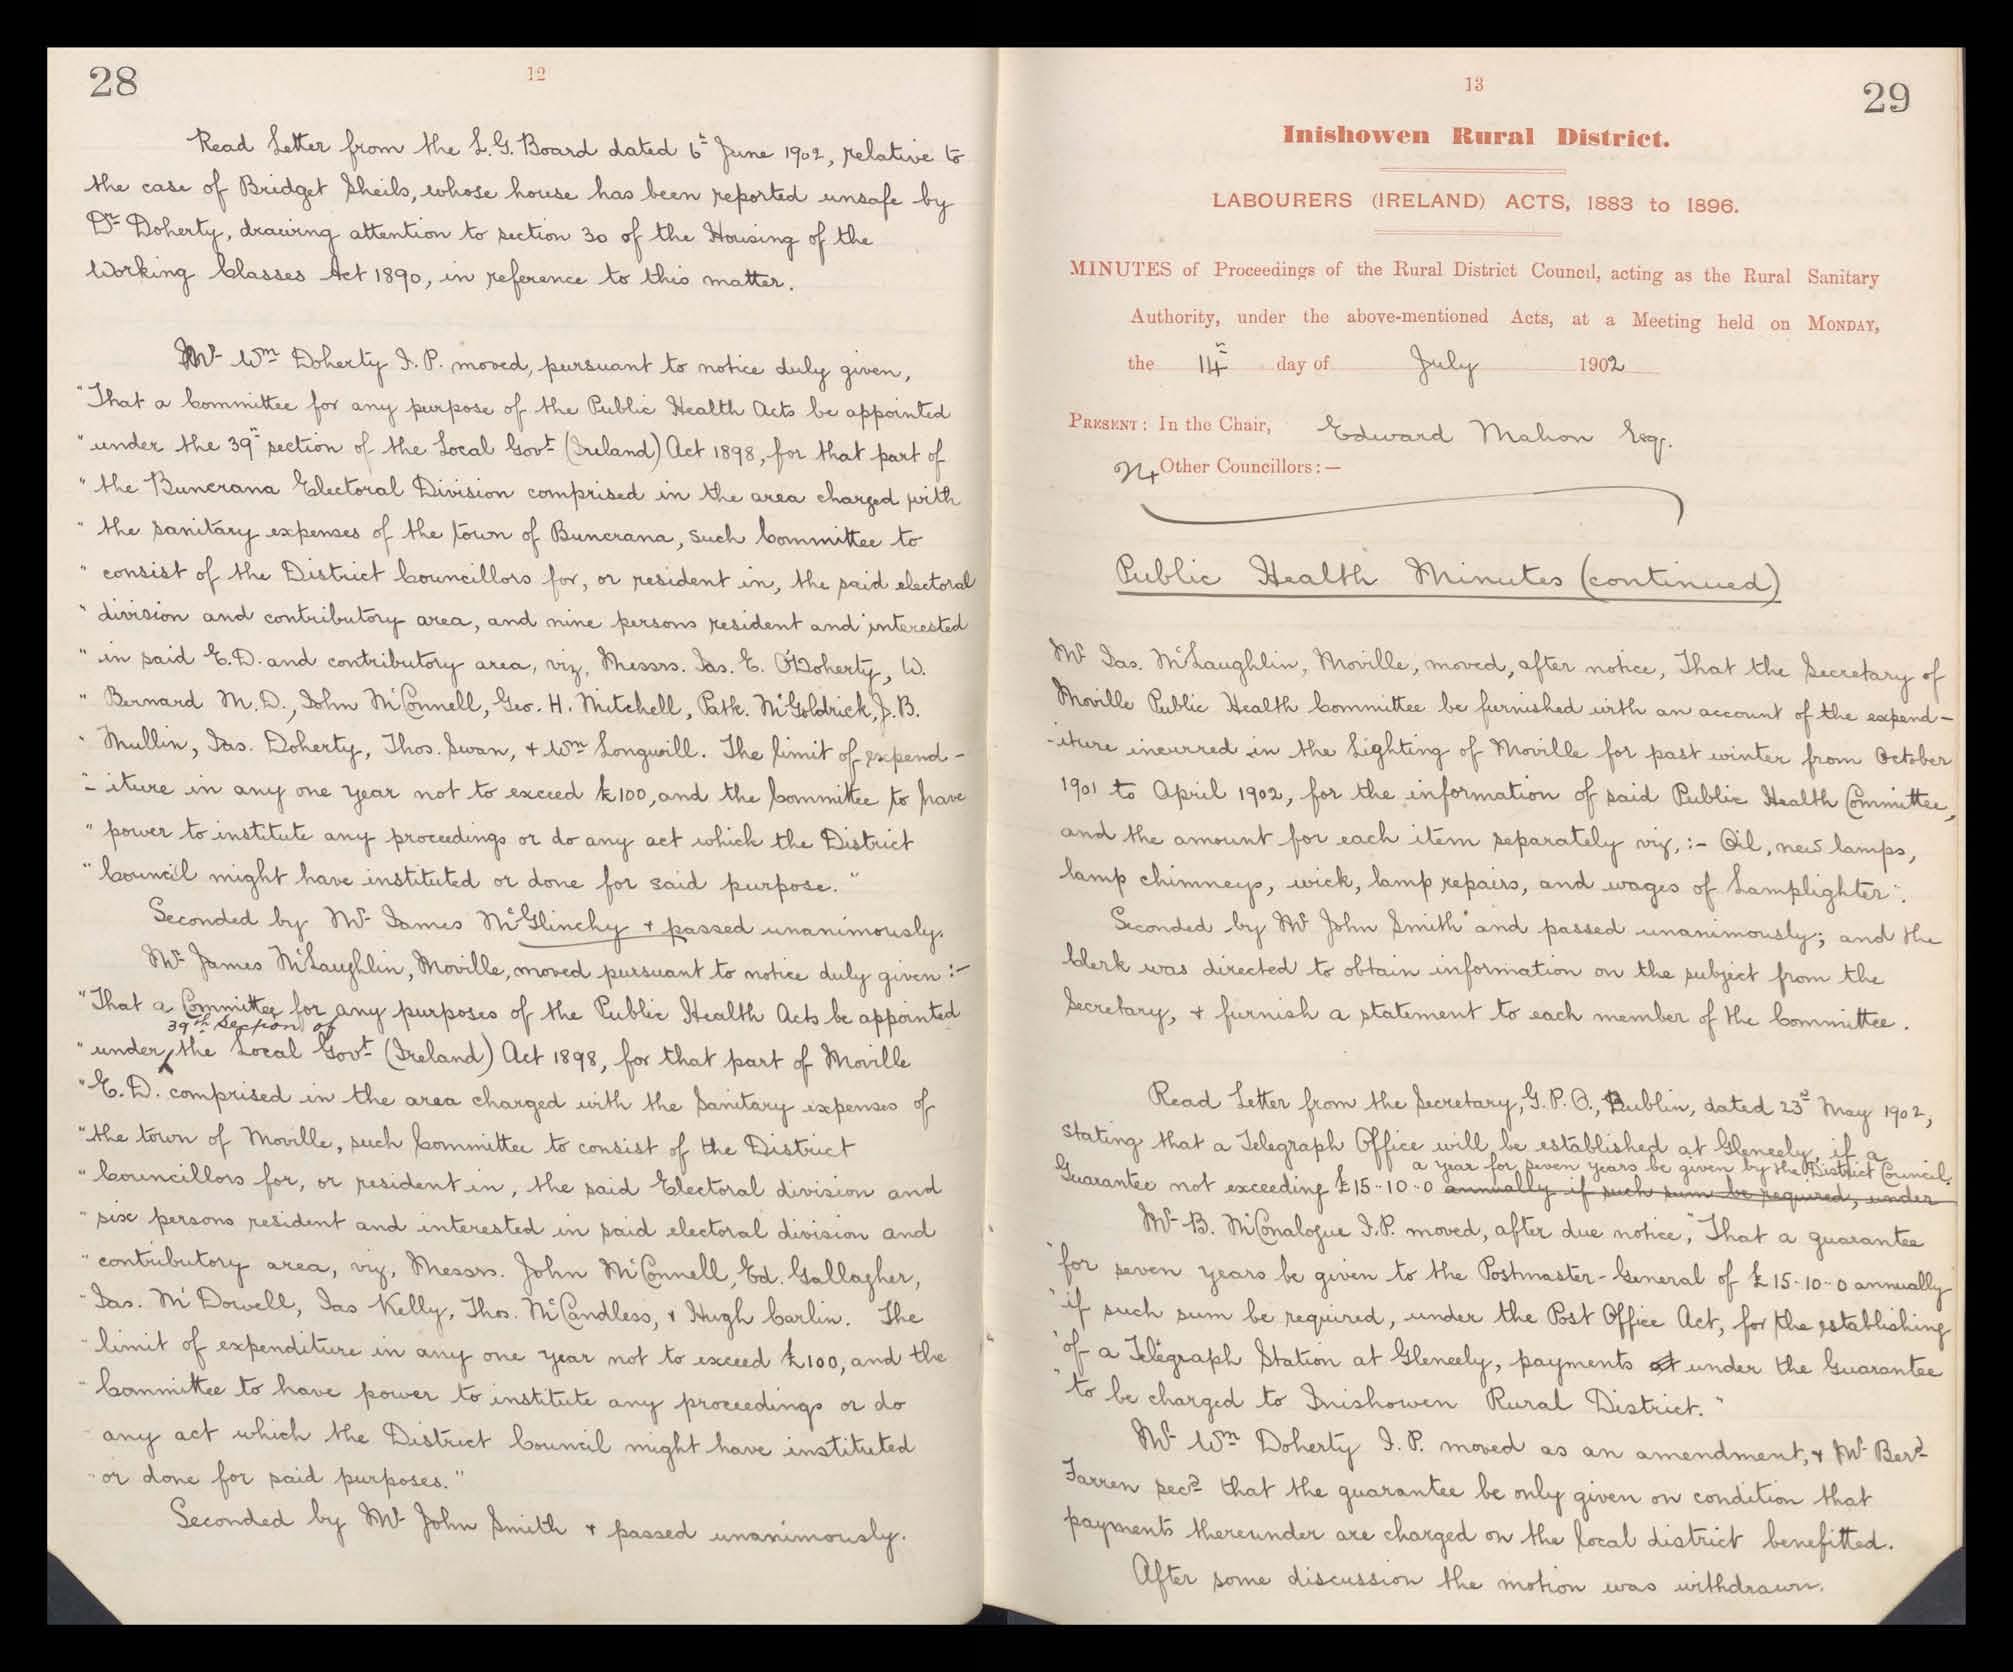 28
12
Read Letter from the L.G. Board dated 6th June 1902, relative to
the case of Bridget Sheils, whose house has been reported unsafe by
Dr Doherty, drawing attention to section 30 of the Housing of the
Working Classes Act 1890, in reference to this matter.
Mr Wm Doherty J.P. moved, pursuant to notice duly given,
"That a Committee for any purpose of the Public Health Acts be appointed
"under the 39th section of the Local Govt (Ireland) Act 1898, for that part of
"the Buncrana Electoral Division comprised in the area charged with
"the sanitary expenses of the town of Buncrana, such Committee to
"consist of the District Councillors for, or resident in, the said electoral
"division and contributory area, and nine persons resident and interested
"in said E.D. and contributory area, viz, Messrs. Jas. E. O'Doherty, W.
"Bernard M.D., John McConnell, Geo. H. Mitchell, Patk. McGoldrick, J.B.
"Mullin, Jas. Doherty, Thos. Swan, & Wm Longwill. The limit of expend-
"-iture in any one year not to exceed £100, and the Committee to have
"power to institute any proceedings or do any act which the District
"Council might have instituted or done for said purpose."
Seconded by Mr James McGlinchy & passed unanimously.
Mr James McLaughlin, Moville, moved pursuant to notice duly given :-
"That a Committee for any purposes of the Public Health Acts be appointed
39th Section of
"under the Local Govt (Ireland) Act 1898, for that part of Moville
"E.D. comprised in the area charged with the Sanitary expenses of
"the town of Moville, such Committee to consist of the District
"Councillors for, or resident in, the said Electoral division and
"six persons resident and interested in said electoral division and
"contributory area, viz, Messrs. John McConnell, Ed. Gallagher,
"Jas. McDowell, Jas Kelly, Thos. McCandless, & Hugh Carlin. The
"limit of expenditure in any one year not to exceed £100, and the
"Committee to have power to institute any proceedings or do
"any act which the District Council might have instituted
"or done for said purposes."
Seconded by Mr John Smith & passed unanimously.
13
29
Inishowen Rural District.
LABOURERS (IRELAND) ACTS, 1883 to 1896.
MINUTES of Proceedings of the Rural District Council, acting as the Rural Sanitary
Authority, under the above-mentioned Acts, at a Meeting held on MONDAY,
the 14th day of July 1902
PRESENT: In the Chair, Edward Mahon Esq.
Other Councillors:—
Public Health Minutes (continued)
Mr Jas. McLaughlin, Moville, moved, after notice, That the Secretary of
Moville Public Health Committee be furnished with an account of the expend-
-iture incurred in the Lighting of Moville for past winter from October
1901 to April 1902, for the information of said Public Health Committee,
and the amount for each item separately viz, :- Oil, new lamps,
lamp chimneys, wick, lamp repairs, and wages of Lamplighter".
Seconded by Mr John Smith and passed unanimously; and the
Clerk was directed to obtain information on the subject from the
Secretary, & furnish a statement to each member of the Committee.
Read Letter from the Secretary, G.P.O., Dublin, dated 23d May 1902,
stating that a Telegraph Office will be established at Gleneely, if a
a year for seven years be given by the District Council.
Guarantee not exceeding £15-10-0 annually if such sum be required, under
Mr B. McConalogue J.P. moved, after due notice, "That a guarantee
"for seven years be given to the Postmaster-General of £15-10-0 annually
"if such sum be required, under the Post Office Act, for the establishing
"of a Telegraph Station at Gleneely, payments at under the Guarantee
"to be charged to Inishowen Rural District."
Mr Wm Doherty J.P. moved as an amendment, & Mr Berd
Farren secd that the guarantee be only given on condition that
payments thereunder are charged on the local district benefitted.
After some discussion the motion was withdrawn.